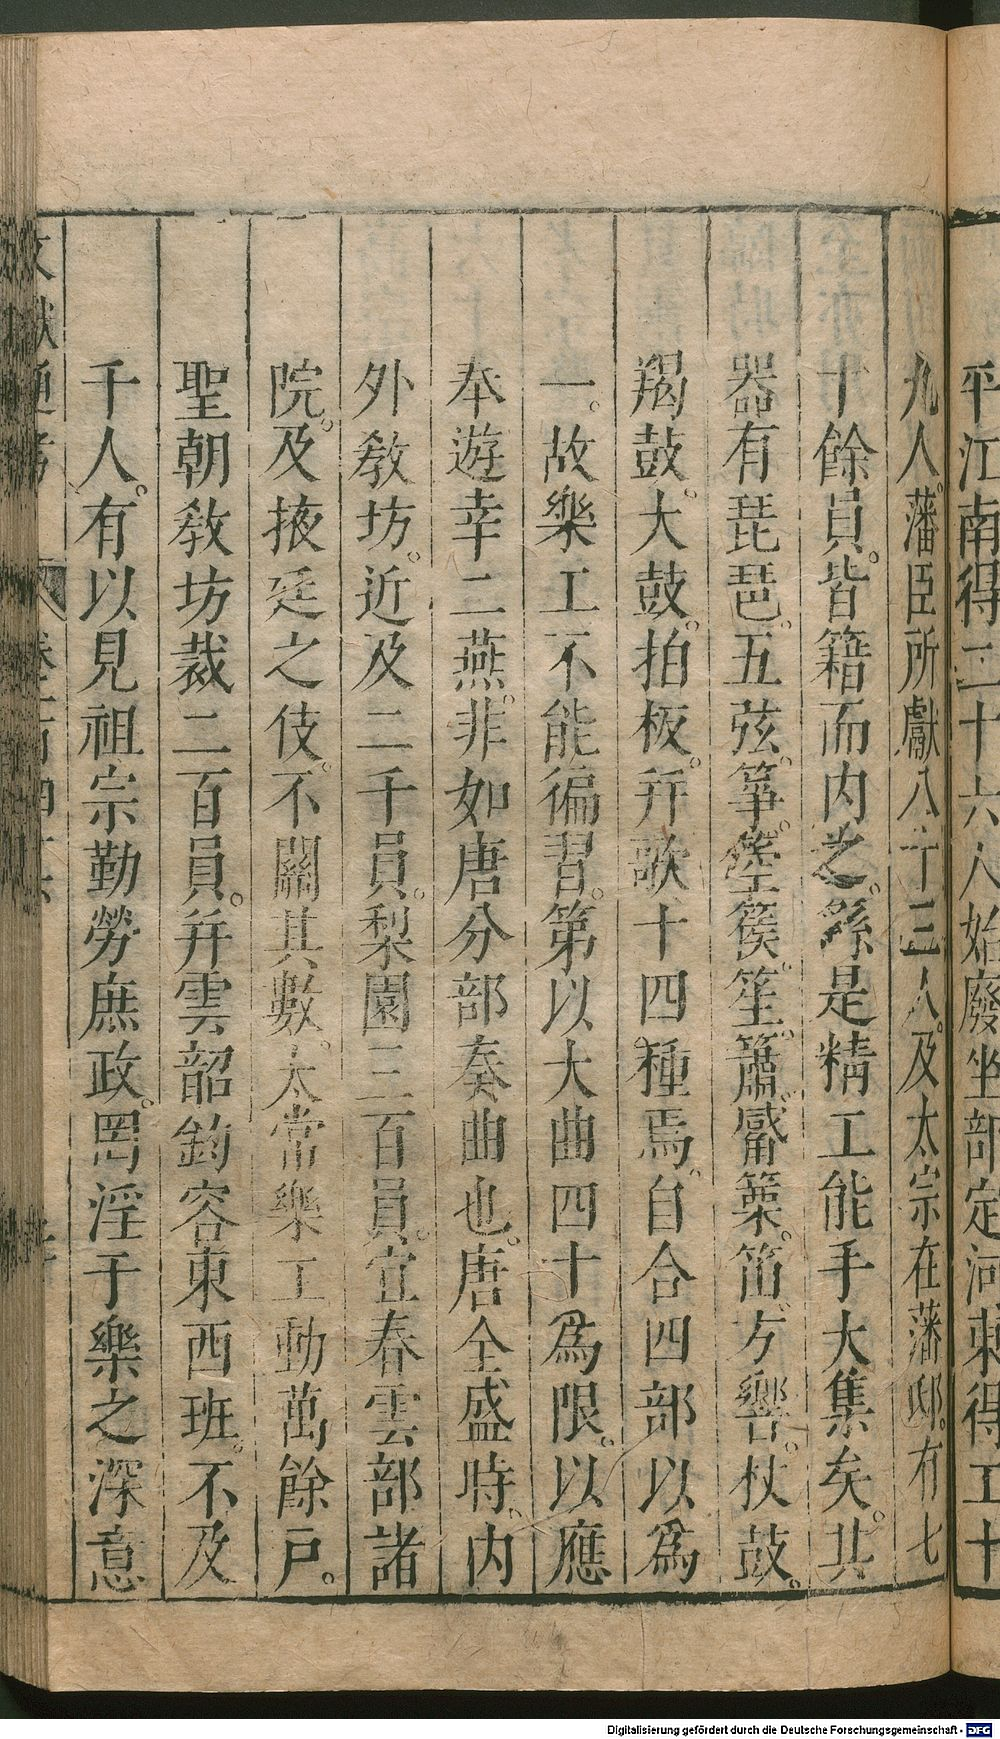 平江南得二十六人始廢坐部定河東得工十
九人。藩臣所獻八十三人。及太宗在藩邸。有七
十餘員。皆籍而内之。繇是精工能手大集矣。其
器有琵琶。五弦。箏。箜篌。笙。簫。觱篥。笛。方響。杖鼓。
羯鼓。大鼓。拍板。并歌十四種焉。自合四部以爲
一。故樂工不能徧習。第以大曲四十爲限。以應
奉遊幸二燕。非如唐分部奏曲也。唐全盛時。内
外教坊。近及二千員。梨園三百員。宜春雲部諸
院。及掖廷之伎。不關其數。太常樂工動萬餘戸。
聖朝教坊裁二百員。并雲韶鈞容東西班。不及
千人。有以見祖宗勤勞庶政。罔淫于樂之深意
文獻通考
Digitalisierung gefördert durch die Deutsche Forschungsgemeinschaft - DFG